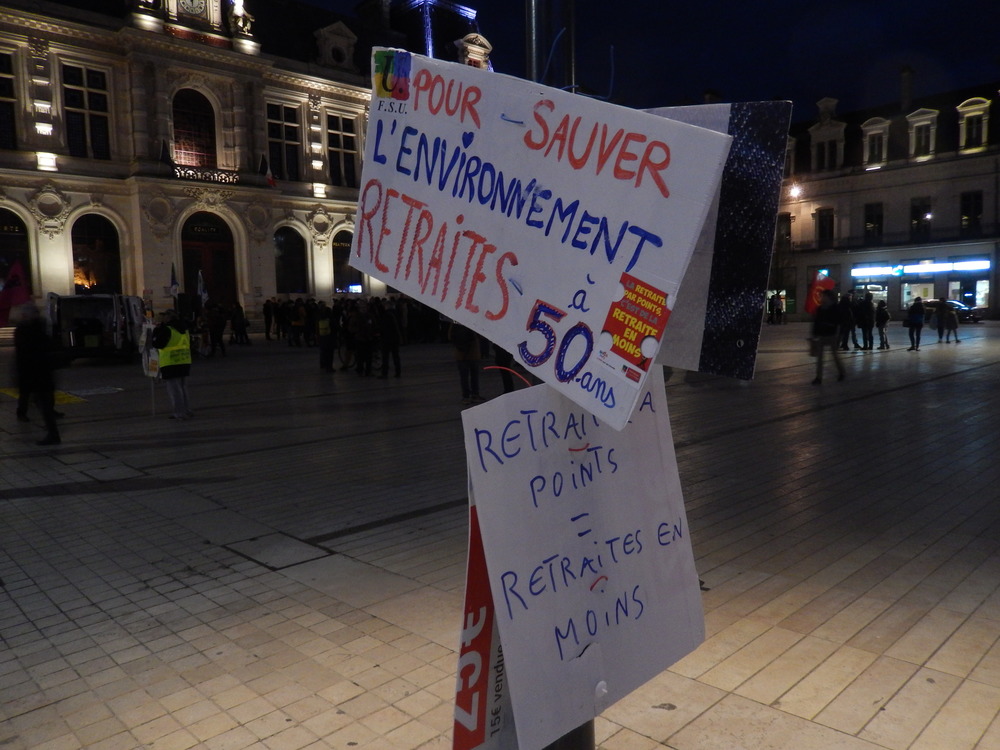 F.S.U.
POUR SAUVER
L'ENVIRONNEMENT
RETRAITES
à
50 ans
LA RETRAITE
PAR POINTS,
C'EST DE LA
RETRAITE
EN
MOINS
RETRAI A
POiNTS
=
RETRAiTES EN
MOiNS
15€ vendue